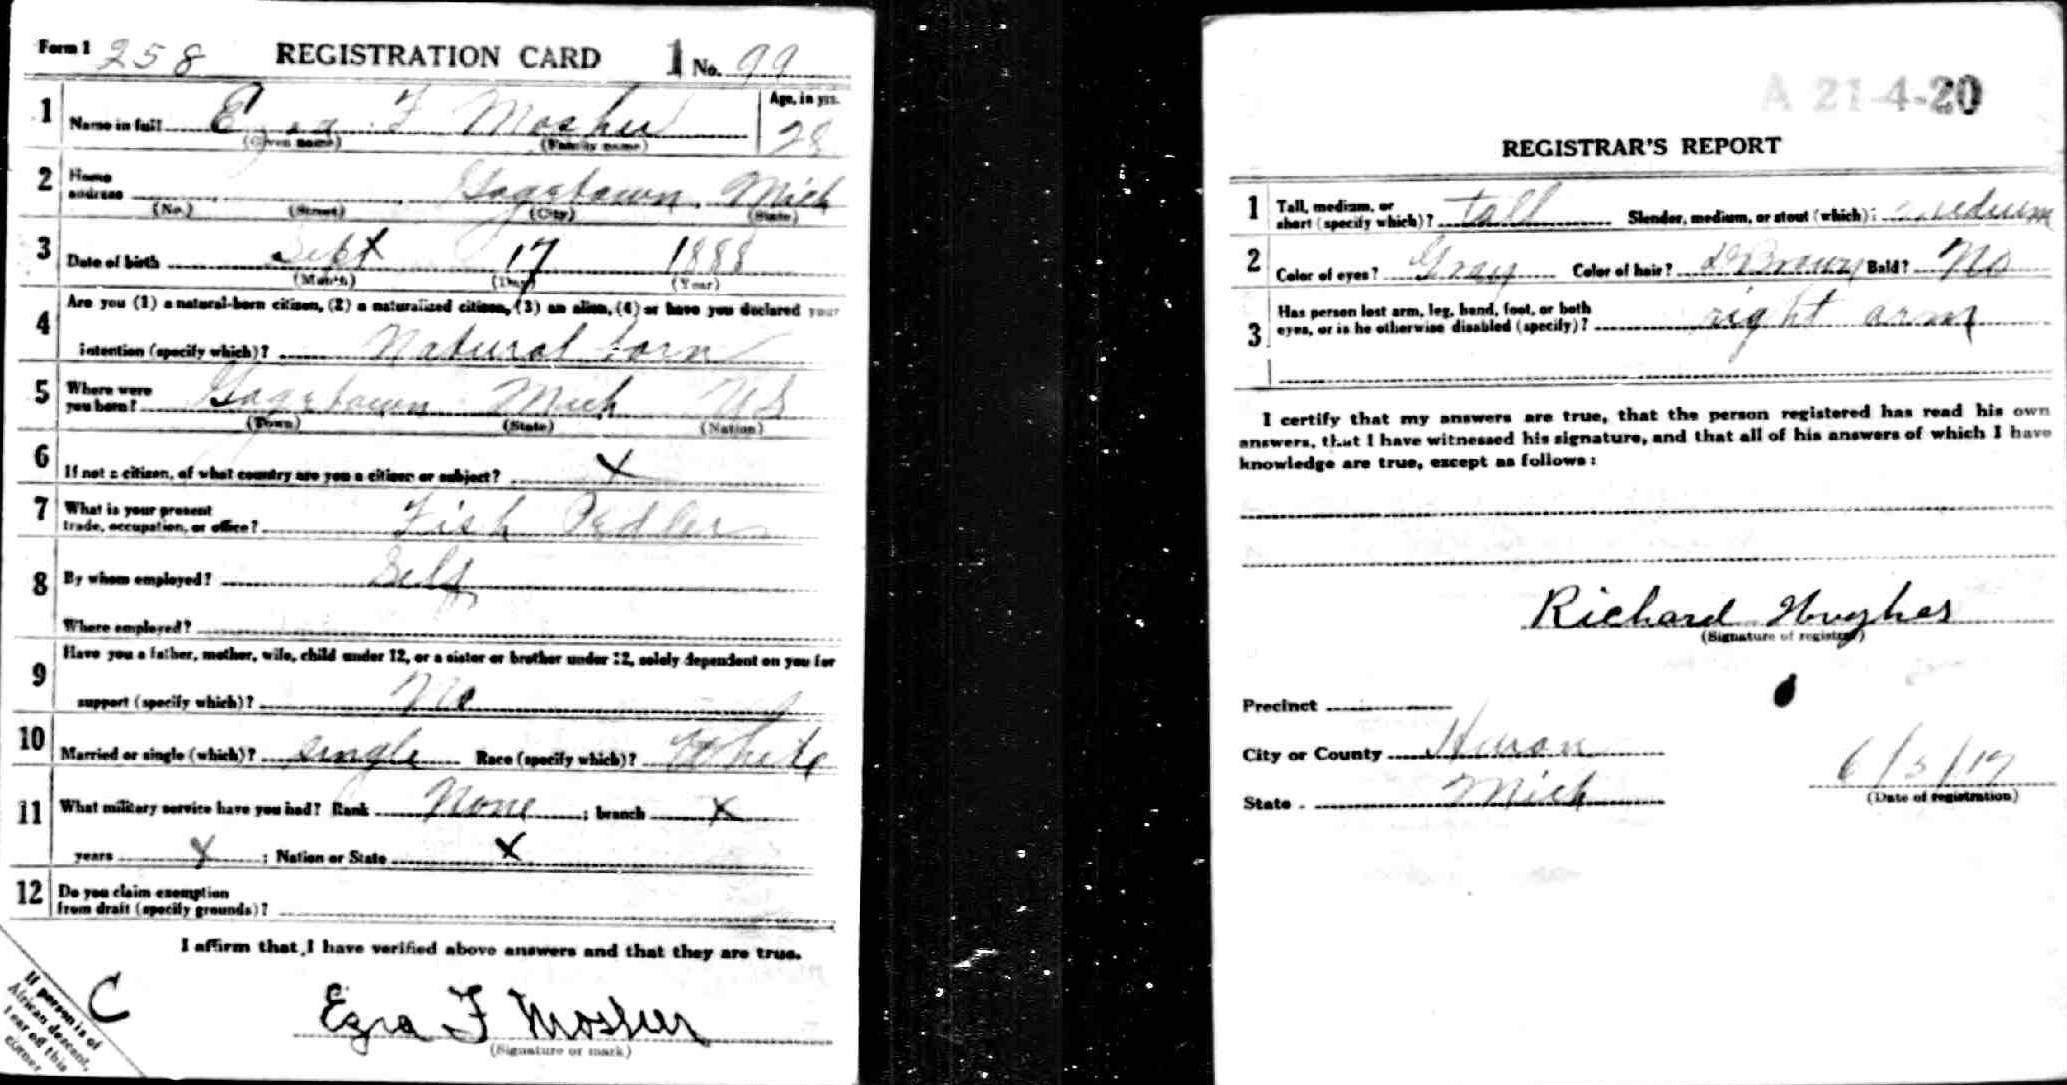 Form 1 258 REGISTRATION CARD 1 No. 99
1 Name in full Ezra F Mosher Age, in yrs. 28
(Given name) (Family name)
2 Home address Gagetown Mich
(No.) (Street) (City) (State)
3 Date of birth Sept 17 1888
(Month) (Day) (Year)
4 Are you (1) a natural-born citizen, (2) a naturalized citizen, (3) an alien, (4) or have you declared your
intention (specify which)? Natural born
5 Where were you born? Gagetown Mich US
(Town) (State) (Nation)
6 If not a citizen, of what country are you a citizen or subject? X
7 What is your present trade, occupation, or office? Fish Pedler
8 By whom employed? Self
Where employed?
9 Have you a father, mother, wife, child under 12, or a sister or brother under 12, solely dependent on you for
support (specify which)? No
10 Married or single (which)? single Race (specify which)? White
11 What military service have you had? Rank None ; branch X
years X ; Nation or State X
12 Do you claim exemption
from draft (specify grounds)?
I affirm that I have verified above answers and that they are true.
C
Ezra F Mosher
(Signature or mark)
If person is of
African descent,
tear off this
corner
A 21-4-20
REGISTRAR'S REPORT
1 Tall, medium, or short (specify which)? tall Slender, medium, or stout (which)? medium
2 Color of eyes? Gray Color of hair? d Brown Bald? No
3 Has person lost arm, leg, hand, foot, or both
eyes, or is he otherwise disabled (specify)? right arm
I certify that my answers are true, that the person registered has read his own
answers, that I have witnessed his signature, and that all of his answers of which I have
knowledge are true, except as follows:
Richard Hughes
(Signature of registrar)
Precinct
City or County Huron
State Mich 6/5/17
(Date of registration)